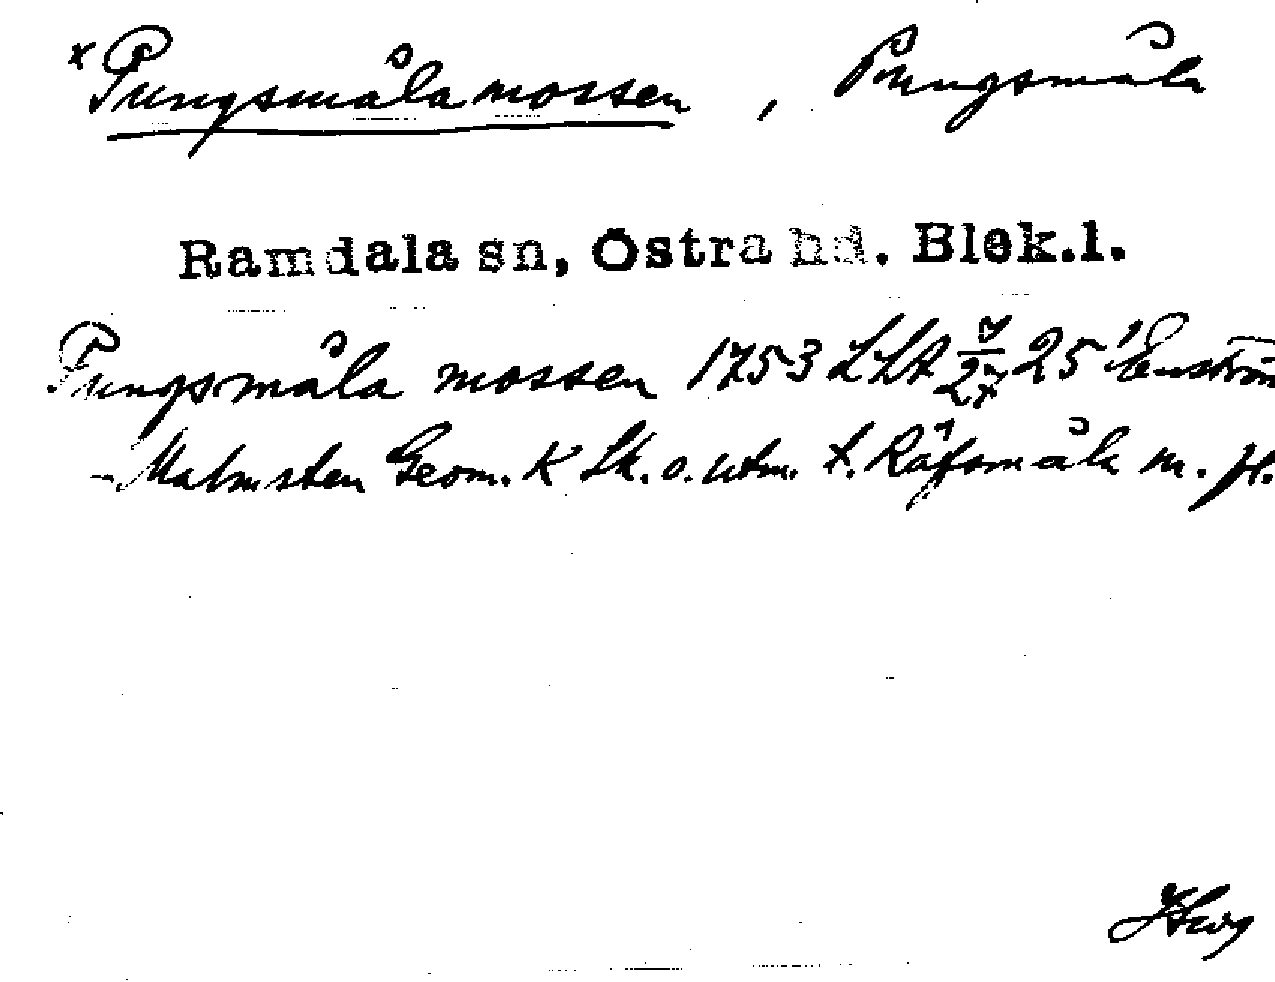 * Pungsmåla mossen , Pungsmåla
Ramdala sn, Östra hd. Blek.l.
Pungsmåla mossen 1753 LSA 25 Enström
- Malmsten Geom. K Sk. o. utm. t. Räfsmåla m. fl.